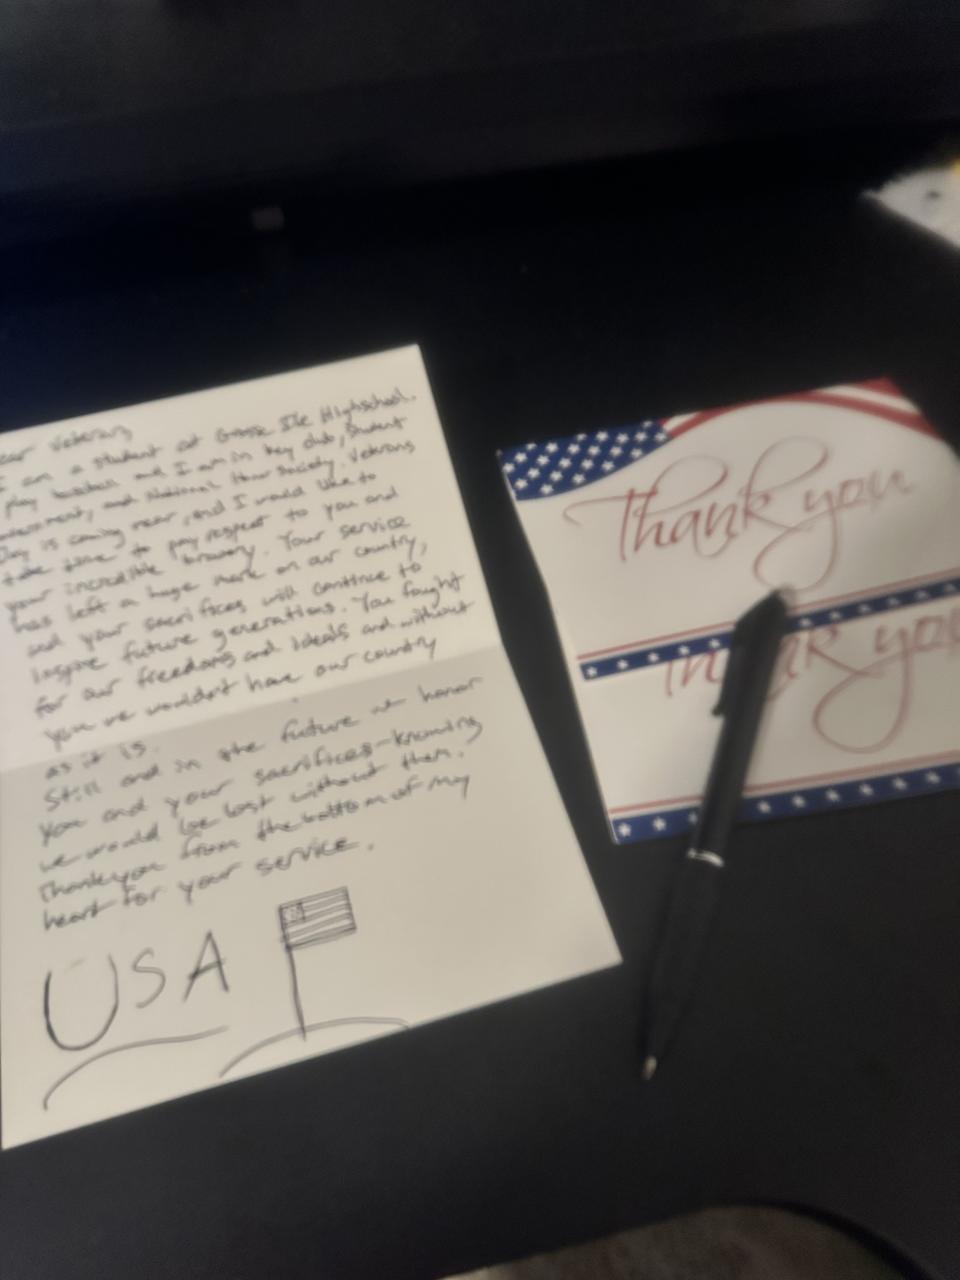 ear Veterans
I am a student at Grosse Ile Highschool.
play baseball and I am in key club, student
and National Honor Society. Veterans
Day is coming near, and I would like to
take time to pay respect to you and
your incredible bravery. Your service
has left a huge mark on our country,
and your sacrifices will continue to
inspire future generations. You fought
for our freedoms and ideals and without
you we wouldn't have our country
as it is.
Still and in the future we honor
you and your sacrifices-knowing
we would be lost without them.
Thank you from the bottom of my
heart for your service.
USA
Thank you
Thank you